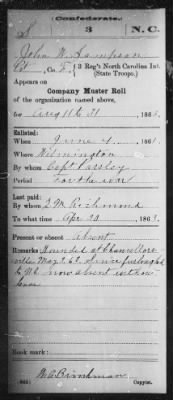 Confederate.
S 3 N.C.
John W. Sampson
Pvt, Co. F, 3 Reg't North Carolina Inf.
(State Troops.)
Appears on
Company Muster Roll
of the organization named above,
for Aug 11 to 31, 1863
Enlisted:
When June 4, 1861
Where Wilmington
By whom Capt Parsley
Period for the war
Last paid:
By whom J M Richmond
To what time Apr 30, 1863
Present or absent absent
Remarks Wounded at Chancellors-
ville May 3, 63. Since furloughed
to N.C. now absent without
leave
Book mark:
W C Brindman
(642) Copyist.